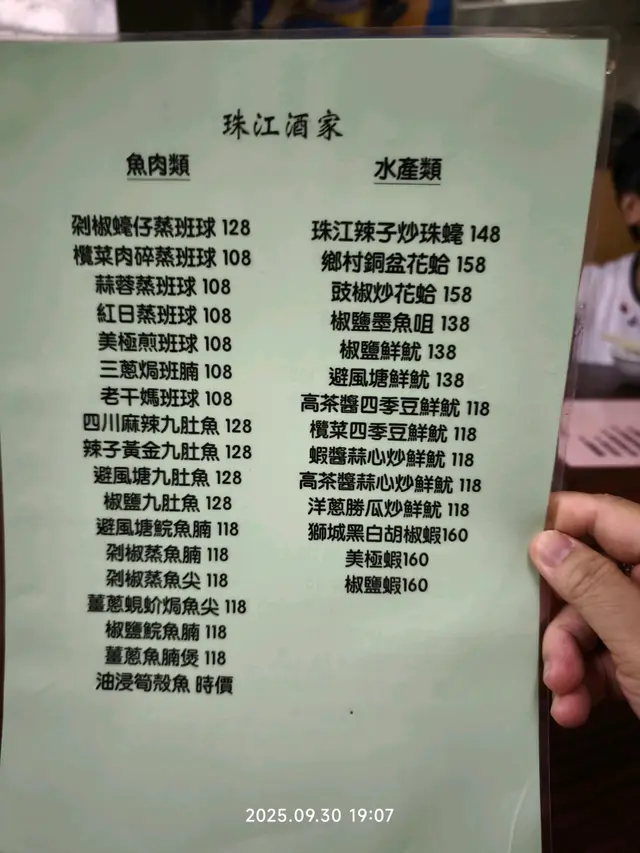 珠江酒家
魚肉類
剁椒蠔仔蒸班球 128
欖菜肉碎蒸班球 108
蒜蓉蒸班球 108
紅日蒸班球 108
美極煎班球 108
三蔥焗班腩 108
老干媽班球 108
四川麻辣九肚魚 128
辣子黃金九肚魚 128
避風塘九肚魚 128
椒鹽九肚魚 128
避風塘鯇魚腩 118
剁椒蒸魚腩 118
剁椒蒸魚尖 118
薑蔥蜆蚧焗魚尖 118
椒鹽鯇魚腩 118
薑蔥魚腩煲 118
油浸筍殼魚 時價
水產類
珠江辣子炒珠蠔 148
鄉村銅盆花蛤 158
豉椒炒花蛤 158
椒鹽墨魚咀 138
椒鹽鮮魷 138
避風塘鮮魷 138
高茶醬四季豆鮮魷 118
欖菜四季豆鮮魷 118
蝦醬蒜心炒鮮魷 118
高茶醬蒜心炒鮮魷 118
洋蔥勝瓜炒鮮魷 118
獅城黑白胡椒蝦160
美極蝦160
椒鹽蝦160
2025.09.30 19:07